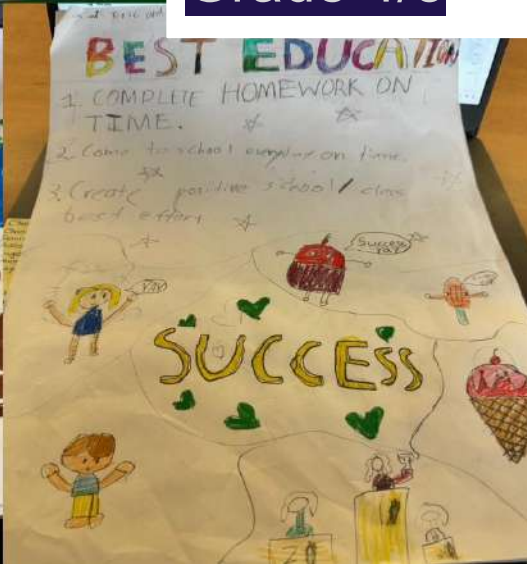 Grade 4/5
BEST EDUCATION
1. COMPLETE HOMEWORK ON
TIME.
2. Come to school everyday on time.
3. Create positive school / class
best effort
Success
YAY
YAY
SUCCESS